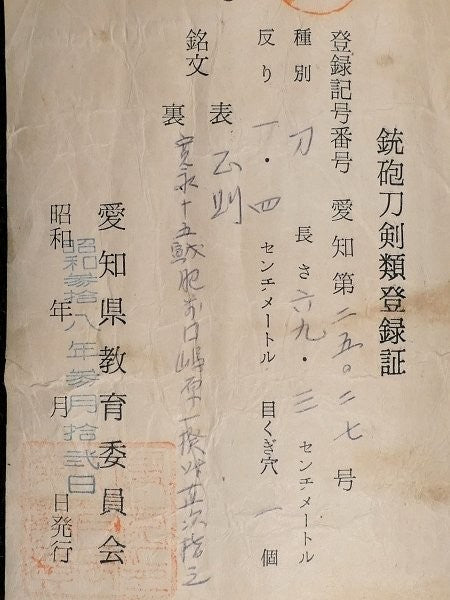 銃砲刀剣類登録証
登録記号番号 愛知第二五〇二七号
種別 刀 長さ六九・三センチメートル
反り 一・四センチメートル 目くぎ穴 一個
銘文 表 正則
裏 寛永十五 肥 口嶋原一揆 指之
愛知県教育委員会
昭和 年 月 日発行
昭和参拾八年参月拾弐日